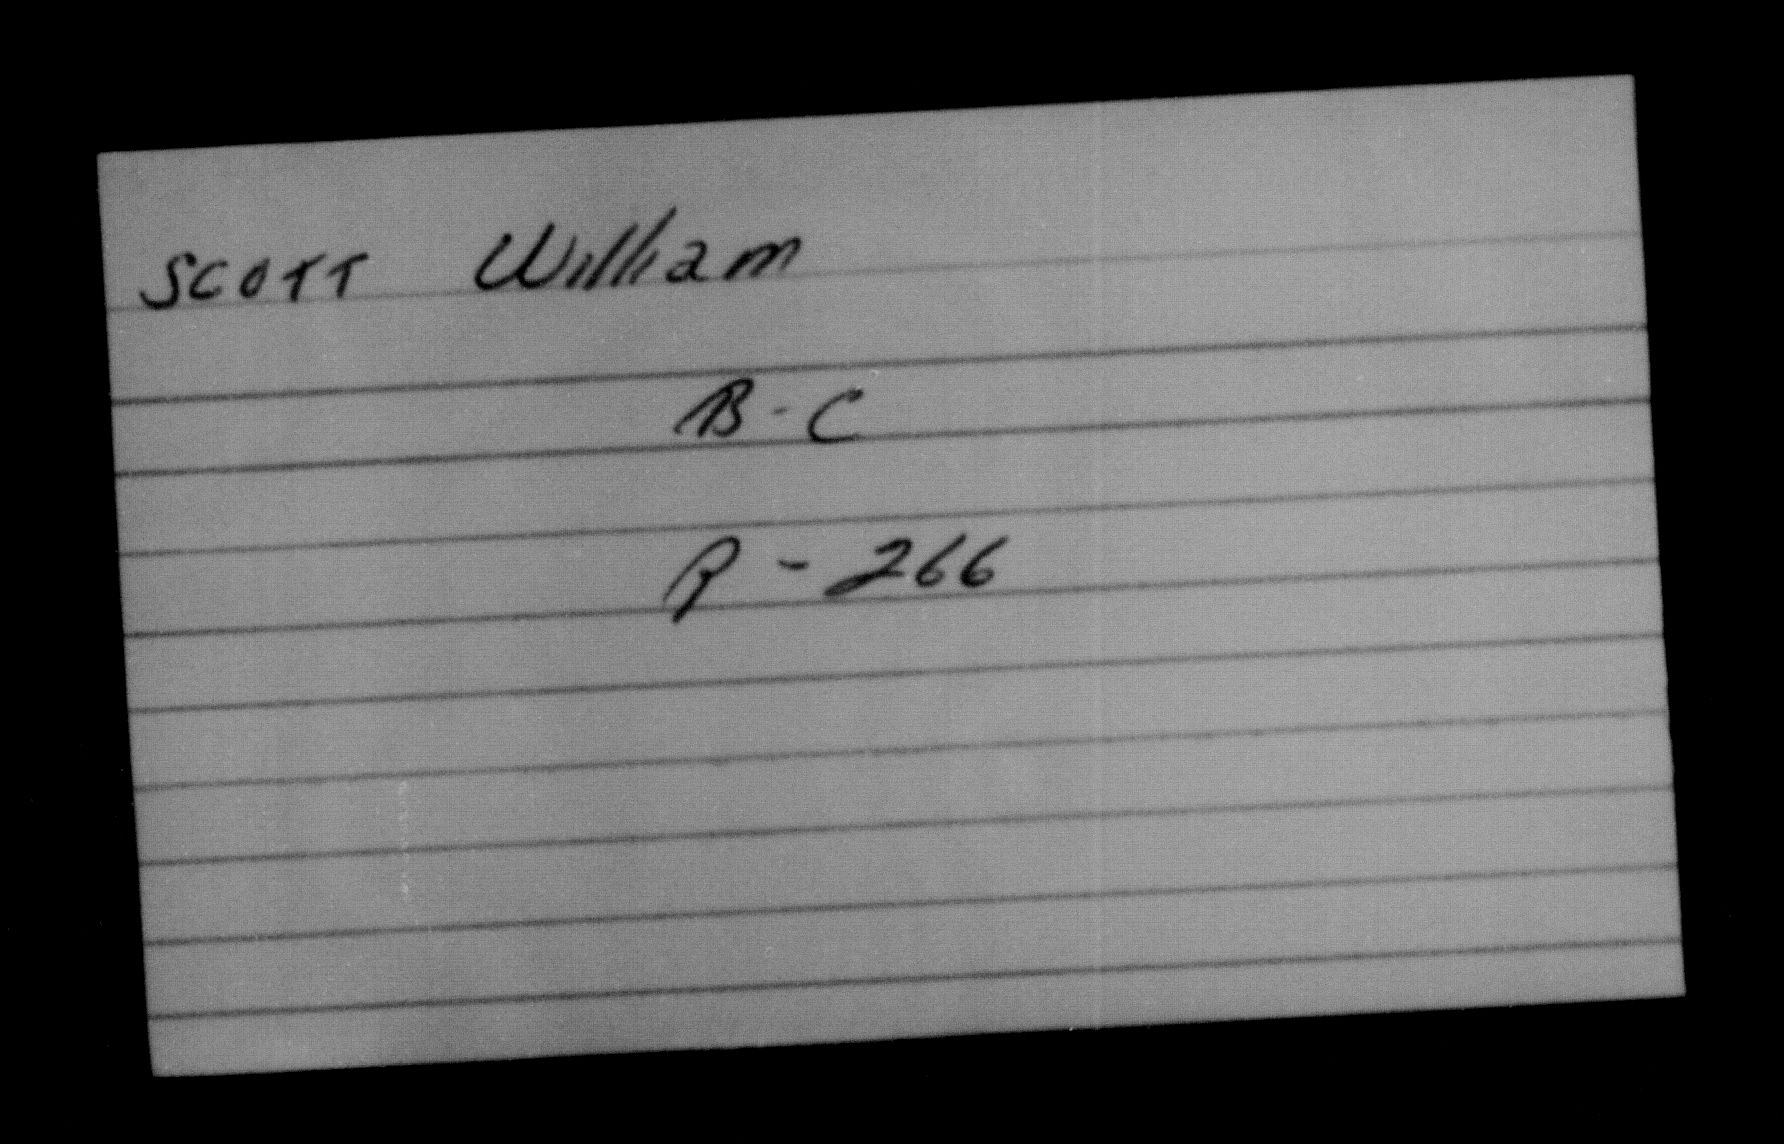 SCOTT William
B - C
P - 266